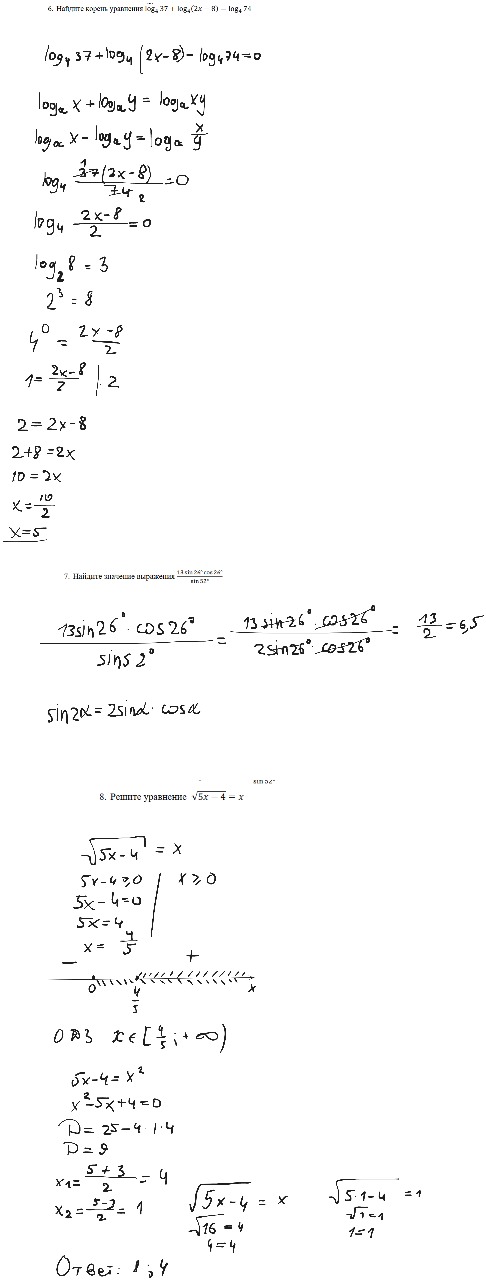 6. Найдите корень уравнения log₄ 37 + log₄(2x − 8) − log₄ 74
log₄ 37 + log₄ (2x-8) - log₄ 74 = 0
logₐ x + logₐ y = logₐ xy
logₐ x - logₐ y = logₐ x/y
log₄ 37(2x-8)/74 = 0
1
2
log₄ (2x-8)/2 = 0
log₂ 8 = 3
2³ = 8
4⁰ = (2x-8)/2
1 = (2x-8)/2 | · 2
2 = 2x-8
2+8 = 2x
10 = 2x
x = 10/2
x = 5
7. Найдите значение выражения 13 sin 26° cos 26° / sin 52°
13sin26° · cos26° / sin52° = 13 sin26° · cos26° / 2sin26° · cos26° = 13/2 = 6,5
sin2α = 2sinα · cosα
sin 52°
8. Решите уравнение √(5x − 4) = x
√(5x-4) = x
5x-4 ≥ 0 | x ≥ 0
5x-4=0
5x=4
x = 4/5
− +
0 4/5 x
ОДЗ x ∈ [4/5 ; +∞)
5x-4 = x²
x²-5x+4=0
D = 25-4·1·4
D = 9
x₁ = (5+3)/2 = 4
x₂ = (5-3)/2 = 1
√(5x-4) = x
√16 = 4
4 = 4
√(5·1-4) = 1
√1 = 1
1 = 1
Ответ: 1 ; 4